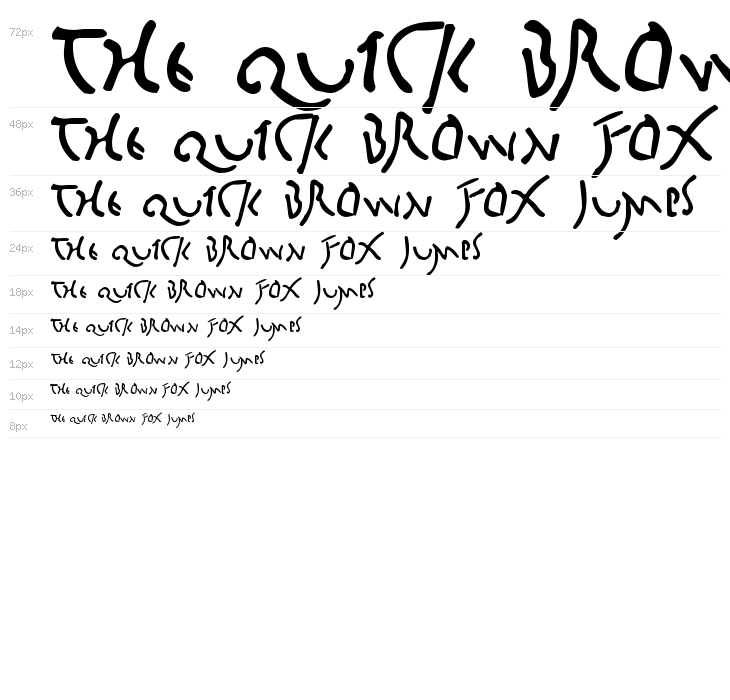 72px THE QUICK BROW
48px THE QUICK BROWN FOX
36px THE QUICK BROWN FOX JUMPS
24px THE QUICK BROWN FOX JUMPS
18px THE QUICK BROWN FOX JUMPS
14px THE QUICK BROWN FOX JUMPS
12px THE QUICK BROWN FOX JUMPS
10px THE QUICK BROWN FOX JUMPS
8px THE QUICK BROWN FOX JUMPS